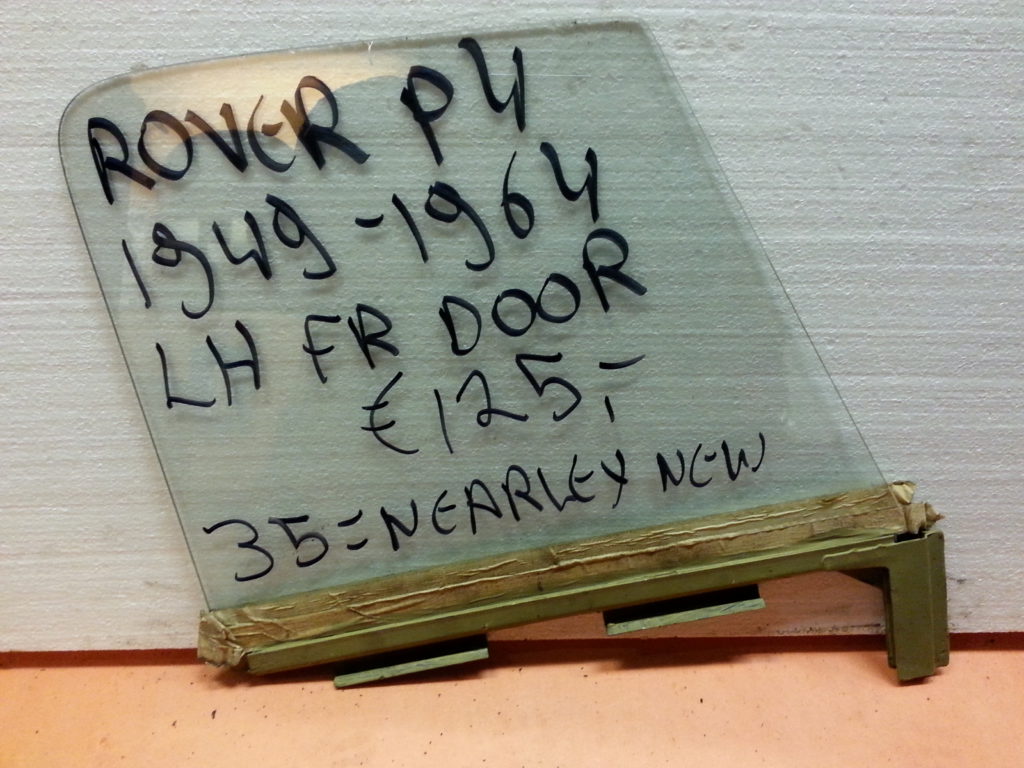 ROVER P4
1949-1964
LH FR DOOR
€125,-
35=NEARLEY NEW